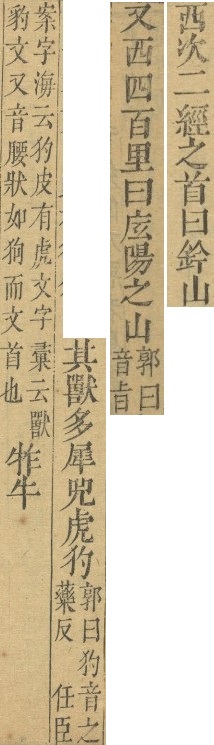 西次二經之首曰鈐山
又西四百里曰底陽之山
郭曰
音旨
其獸多犀兕虎犳
郭曰犳音之
藥反 任臣
案字海云犳皮有虎文字彙云獸
豹文又音腰狀如狗而文首也
㸲牛